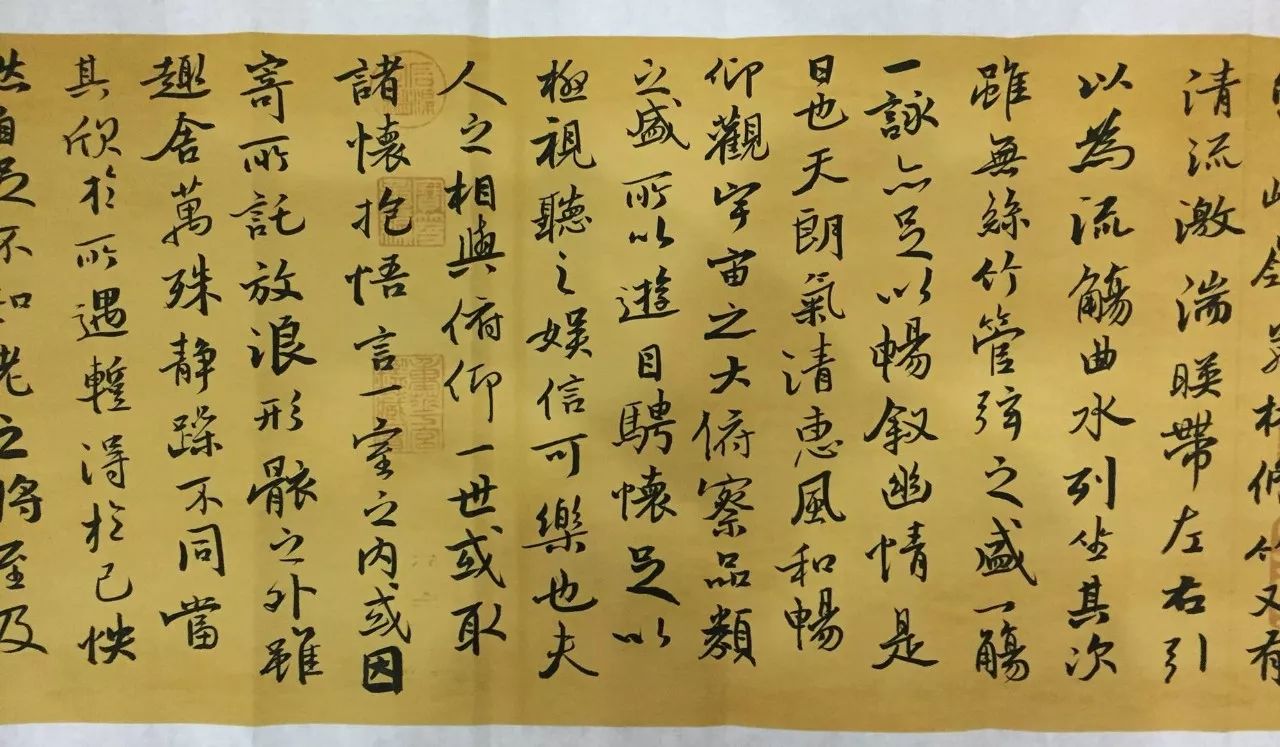 山峻領茂林脩竹又有
清流激湍暎帶左右引
以為流觴曲水列坐其次
雖無絲竹管弦之盛一觴
一詠亦足以暢敘幽情是
日也天朗氣清惠風和暢
仰觀宇宙之大俯察品類
之盛所以遊目騁懷足以
極視聽之娛信可樂也夫
人之相與俯仰一世或取
諸懷抱悟言一室之內或因
寄所託放浪形骸之外雖
趣舍萬殊静躁不同當
其欣於所遇蹔得於己怏
然自足不知老之將至及